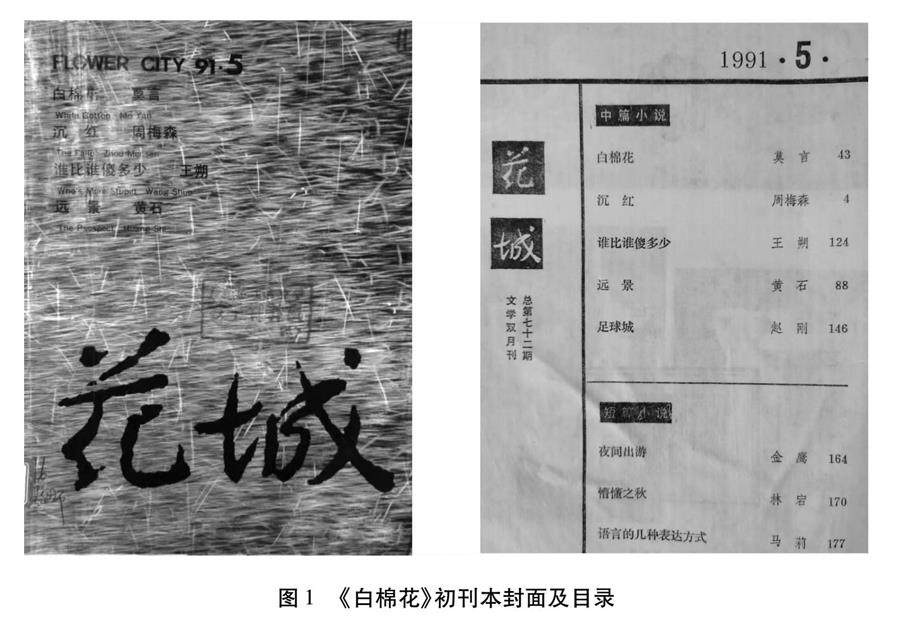 FLOWER CITY 91·5
白棉花 莫言
White Cotton Mo Yan
沉 红 周梅森
Zhou Mei sen
谁比谁傻多少 王朔
Who's More Stupid Wang Shuo
远 景 黄石
The Prospect Huang Shi
花城
1991 · 5 ·
花城
总第七十二期
文学双月刊
中篇小说
白棉花 莫 言 43
沉 红 周梅森 4
谁比谁傻多少 王 朔 124
远 景 黄 石 88
足球城 赵 刚 146
短篇小说
夜间出游 金 鹰 164
懵懂之秋 林 宕 170
语言的几种表达方式 马 莉 177
图1 《白棉花》初刊本封面及目录